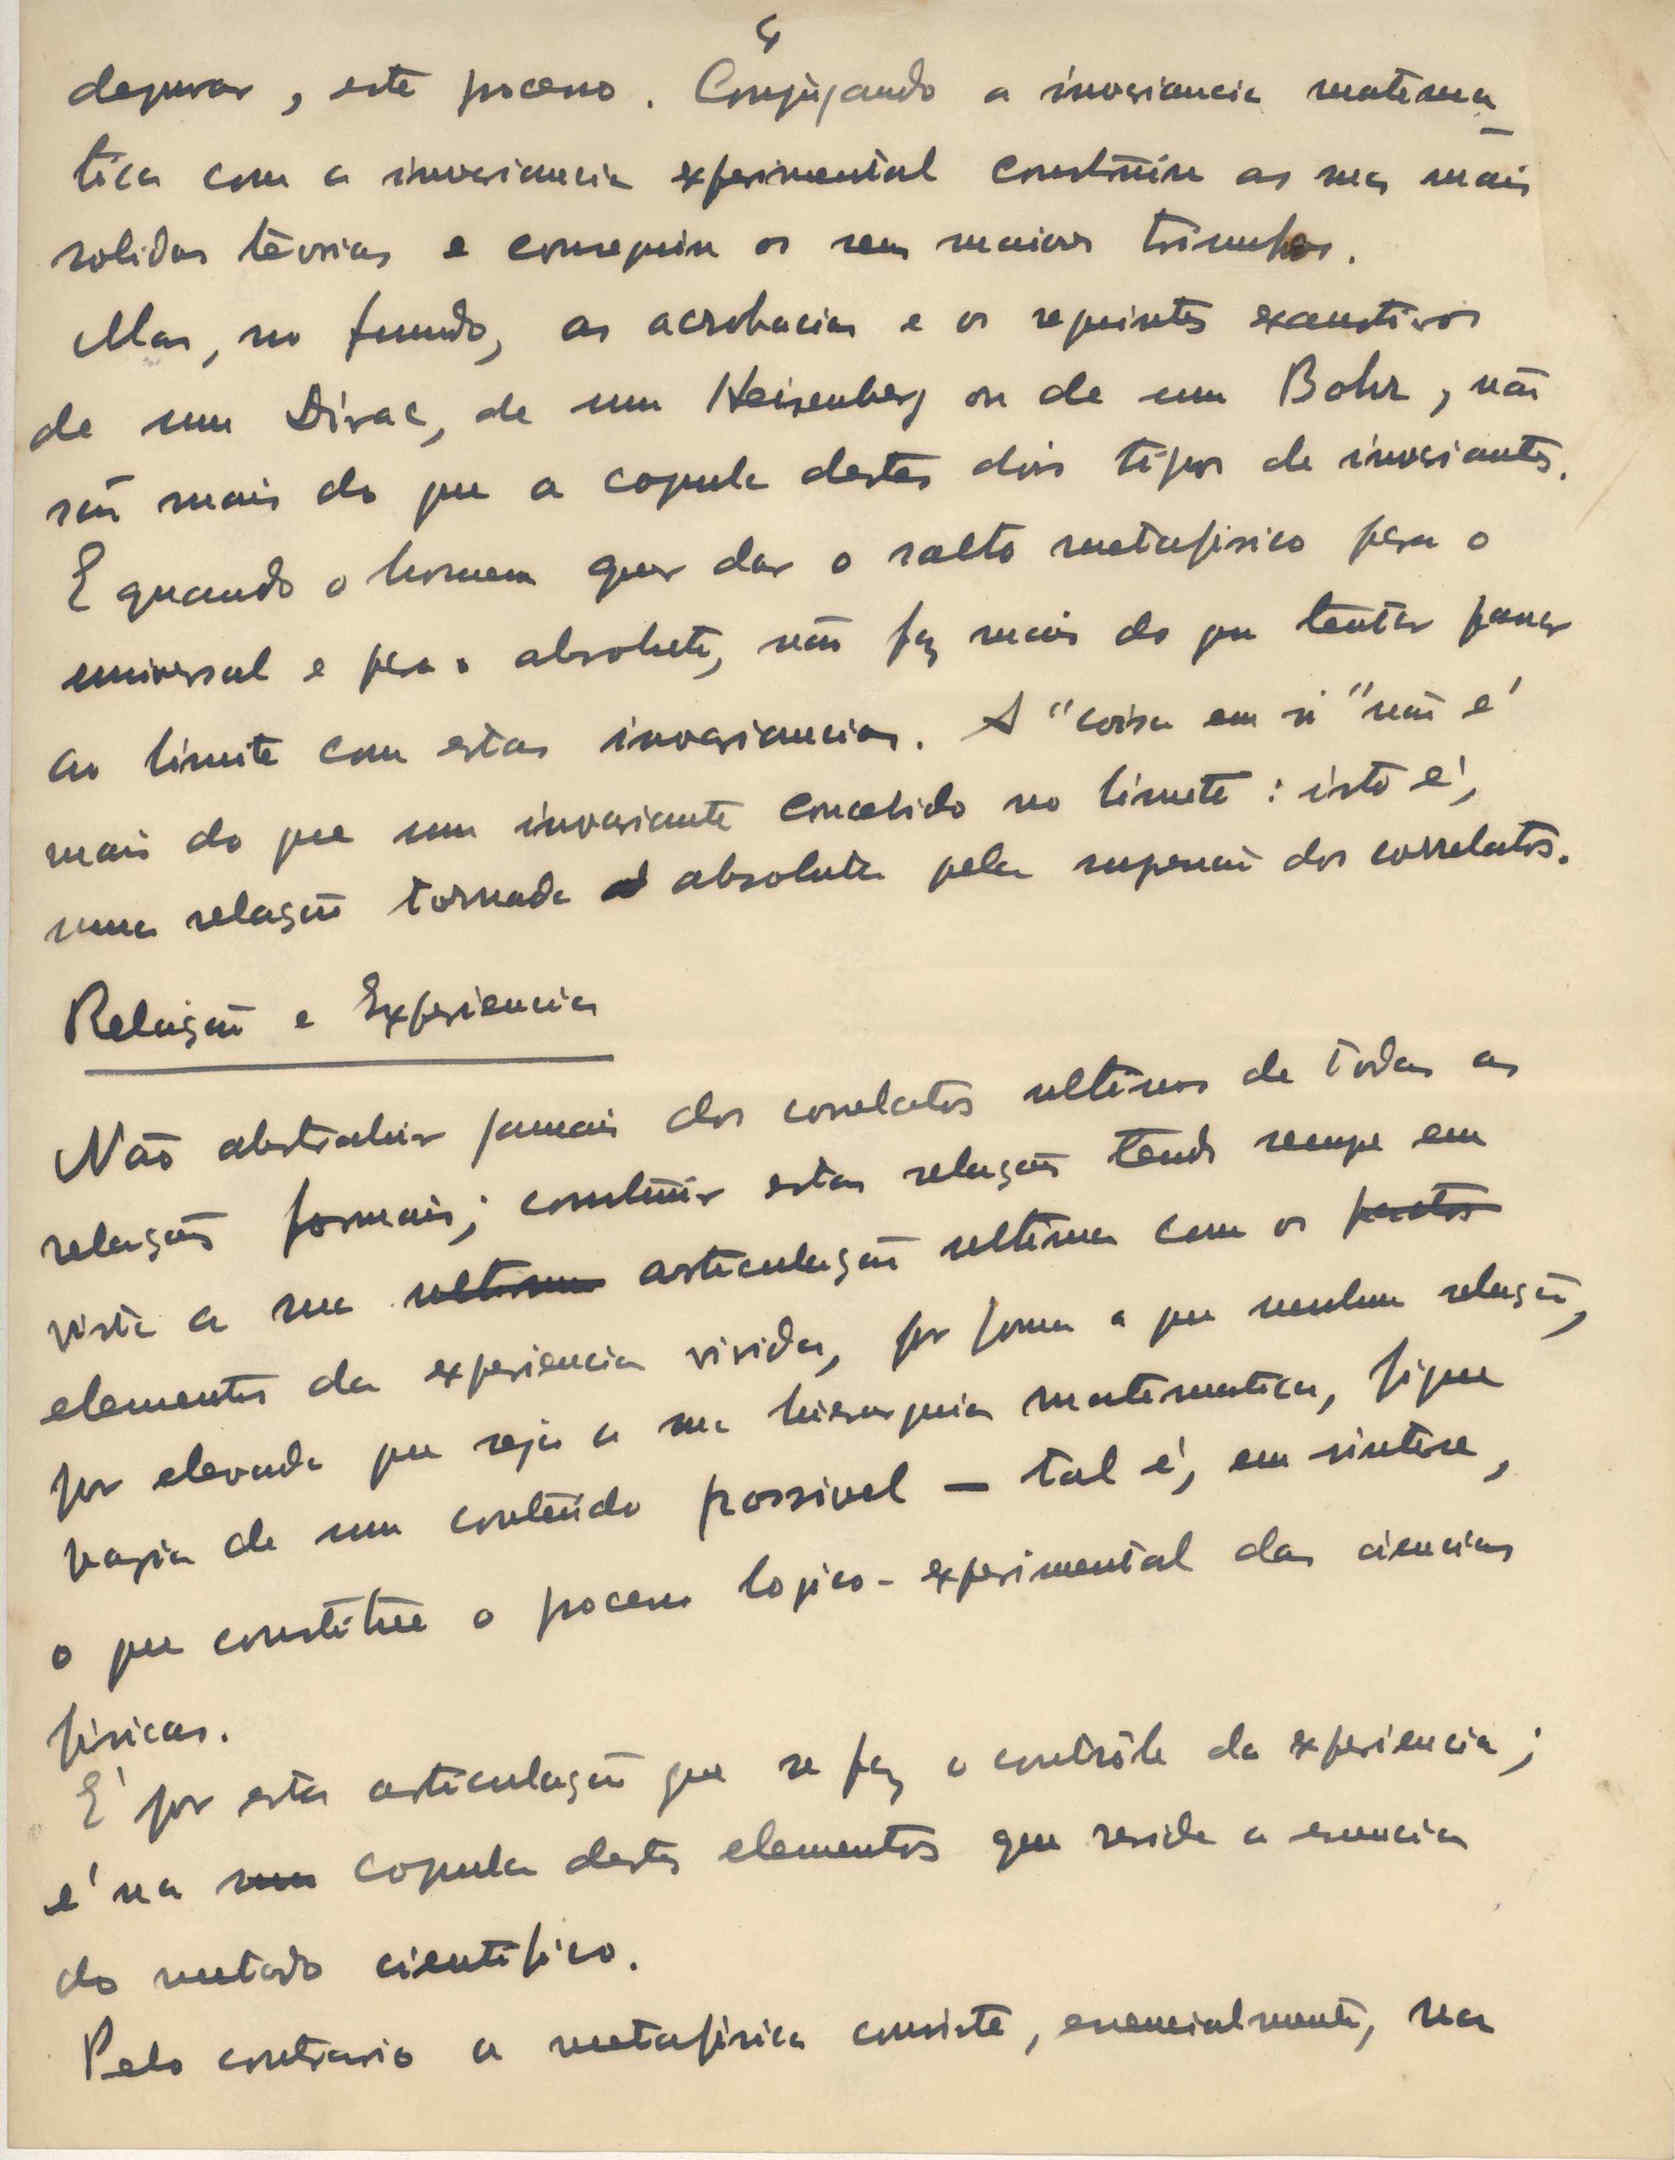 4
depurar, este processo. Conjugando a invariancia matema
tica com a invariancia experimental construiu as suas mais
solidas teorias e conseguiu os seus maiores triunfos.
Mas, no fundo, as acrobacias e os requintes exaustivos
de um Dirac, de um Heisenberg ou de um Bohr, não
são mais do que a copula destes dois tipos de invariantes.
E quando o homem quer dar o salto metafisico para o
universal e para o absoluto, não faz mais do que tentar passar
ao limite com estas invariancias. A "coisa em si" não é
mais do que um invariante concebido no limite: isto é,
uma relação tornada absoluta pela supressão dos correlatos.
Relação e Experiencia
Não abstrahir jamais dos correlatos ultimos de todas as
relações formais; construir estas relações tendo sempre em
vista a sua ultima articulação ultima com os factos
elementos da experiencia vivida, por forma a que nenhuma relação,
por elevada que seja a sua hierarquia matematica, fique
vazia de um conteúdo possivel — tal é, em sintese,
o que constitue o processo logico-experimental das ciencias
fisicas.
É por esta articulação que se faz o contrôle da experiencia;
é na sua copula destes elementos que reside a essencia
do metodo cientifico.
Pelo contrario a metafisica consiste, essencialmente, na